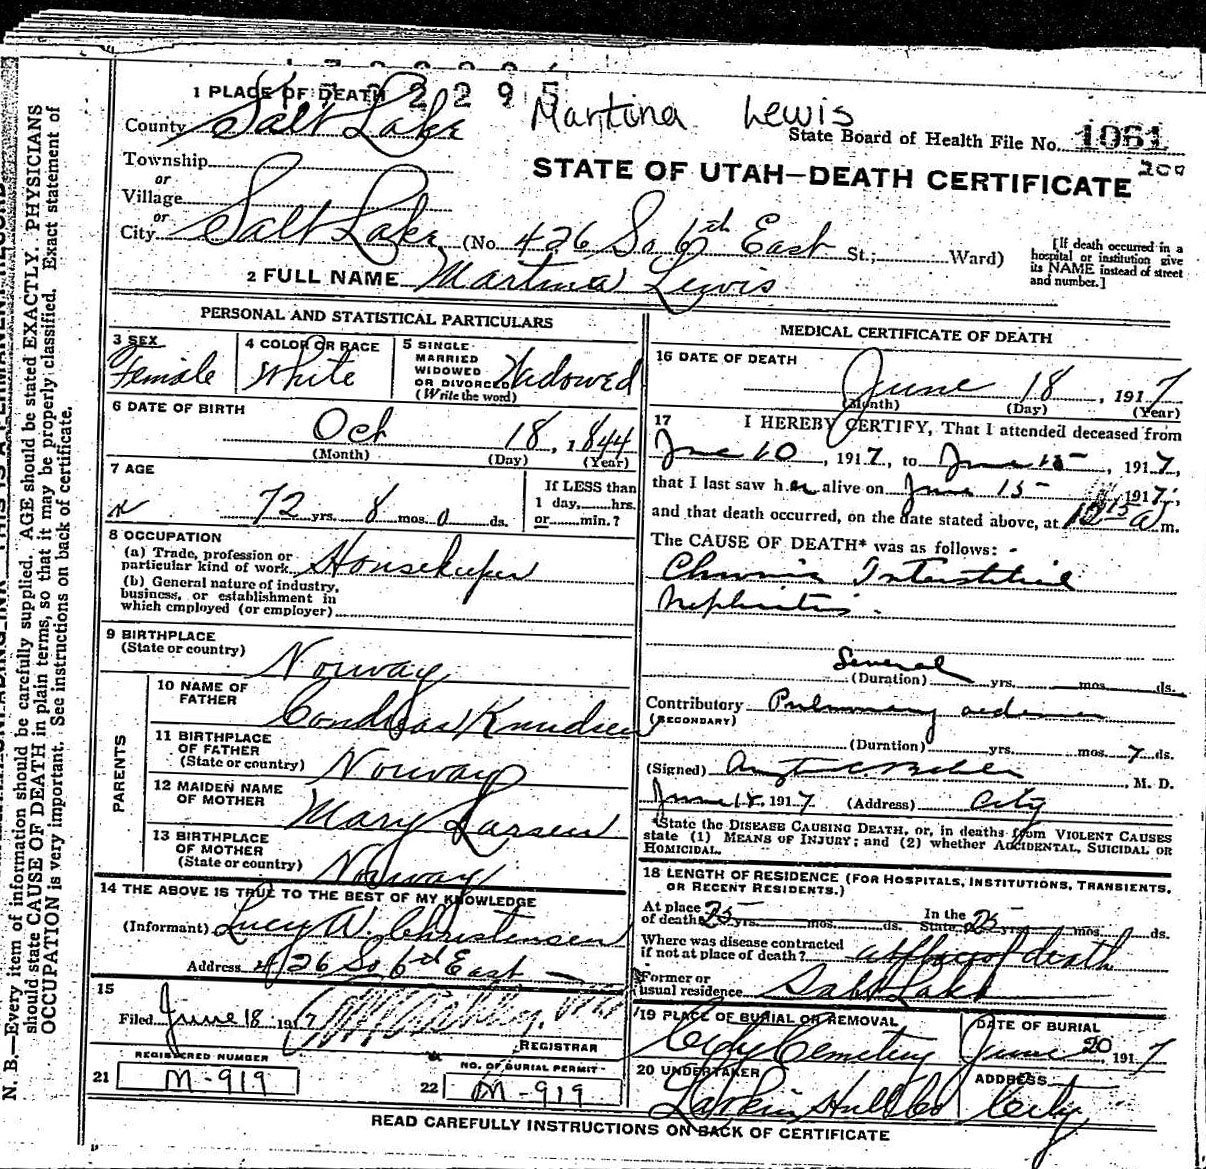 2295
Martina Lewis
1 PLACE OF DEATH
County Salt Lake
State Board of Health File No. 1061
209
Township
or
Village
or
City Salt Lake (No. 426 So 6th East St.; Ward)
STATE OF UTAH—DEATH CERTIFICATE
[If death occurred in a
hospital or institution give
its NAME instead of street
and number.]
2 FULL NAME Martina Lewis
PERSONAL AND STATISTICAL PARTICULARS
3 SEX
Female
4 COLOR OR RACE
White
5 SINGLE
MARRIED
WIDOWED
OR DIVORCED
(Write the word)
Widowed
6 DATE OF BIRTH
Oct 18, 1844
(Month) (Day) (Year)
7 AGE
72 yrs. 8 mos. 0 ds.
If LESS than
1 day, hrs.
or min.?
8 OCCUPATION
(a) Trade, profession or
particular kind of work Housekeeper
(b) General nature of industry,
business, or establishment in
which employed (or employer)
9 BIRTHPLACE
(State or country)
Norway
PARENTS
10 NAME OF
FATHER
Knudsen
11 BIRTHPLACE
OF FATHER
(State or country)
Norway
12 MAIDEN NAME
OF MOTHER
Mary Larsen
13 BIRTHPLACE
OF MOTHER
(State or country)
Norway
14 THE ABOVE IS TRUE TO THE BEST OF MY KNOWLEDGE
(Informant) Lucy W. Christensen
Address 426 So 6th East
15
Filed June 18 1917
REGISTRAR
REGISTERED NUMBER
21 M-919
NO. OF BURIAL PERMIT
22 M-919
MEDICAL CERTIFICATE OF DEATH
16 DATE OF DEATH
June 18, 1917
(Month) (Day) (Year)
17 I HEREBY CERTIFY, That I attended deceased from
June 10, 1917, to June 15, 1917,
that I last saw her alive on June 15, 1917,
and that death occurred, on the date stated above, at 12 15 a m.
The CAUSE OF DEATH* was as follows:
Chronic Interstitial
Nephritis.
Several
(Duration) yrs. mos. ds.
Contributory Pulmonary oedema
(SECONDARY)
(Duration) yrs. mos. 7 ds.
(Signed) M. D.
June 18, 1917 (Address) City
*State the DISEASE CAUSING DEATH, or, in deaths from VIOLENT CAUSES
state (1) MEANS OF INJURY; and (2) whether ACCIDENTAL, SUICIDAL OR
HOMICIDAL.
18 LENGTH OF RESIDENCE (FOR HOSPITALS, INSTITUTIONS, TRANSIENTS,
OR RECENT RESIDENTS.)
At place
of death 25 yrs. mos. ds.
In the
State 25 yrs. mos. ds.
Where was disease contracted
if not at place of death? at place of death
Former or
usual residence Salt Lake
19 PLACE OF BURIAL OR REMOVAL
City Cemetery
DATE OF BURIAL
June 20 1917
20 UNDERTAKER
Larkin Hull Co
ADDRESS
City
READ CAREFULLY INSTRUCTIONS ON BACK OF CERTIFICATE
N. B.—Every item of information should be carefully supplied. AGE should be stated EXACTLY. PHYSICIANS
should state CAUSE OF DEATH in plain terms, so that it may be properly classified. Exact statement of
OCCUPATION is very important. See instructions on back of certificate.